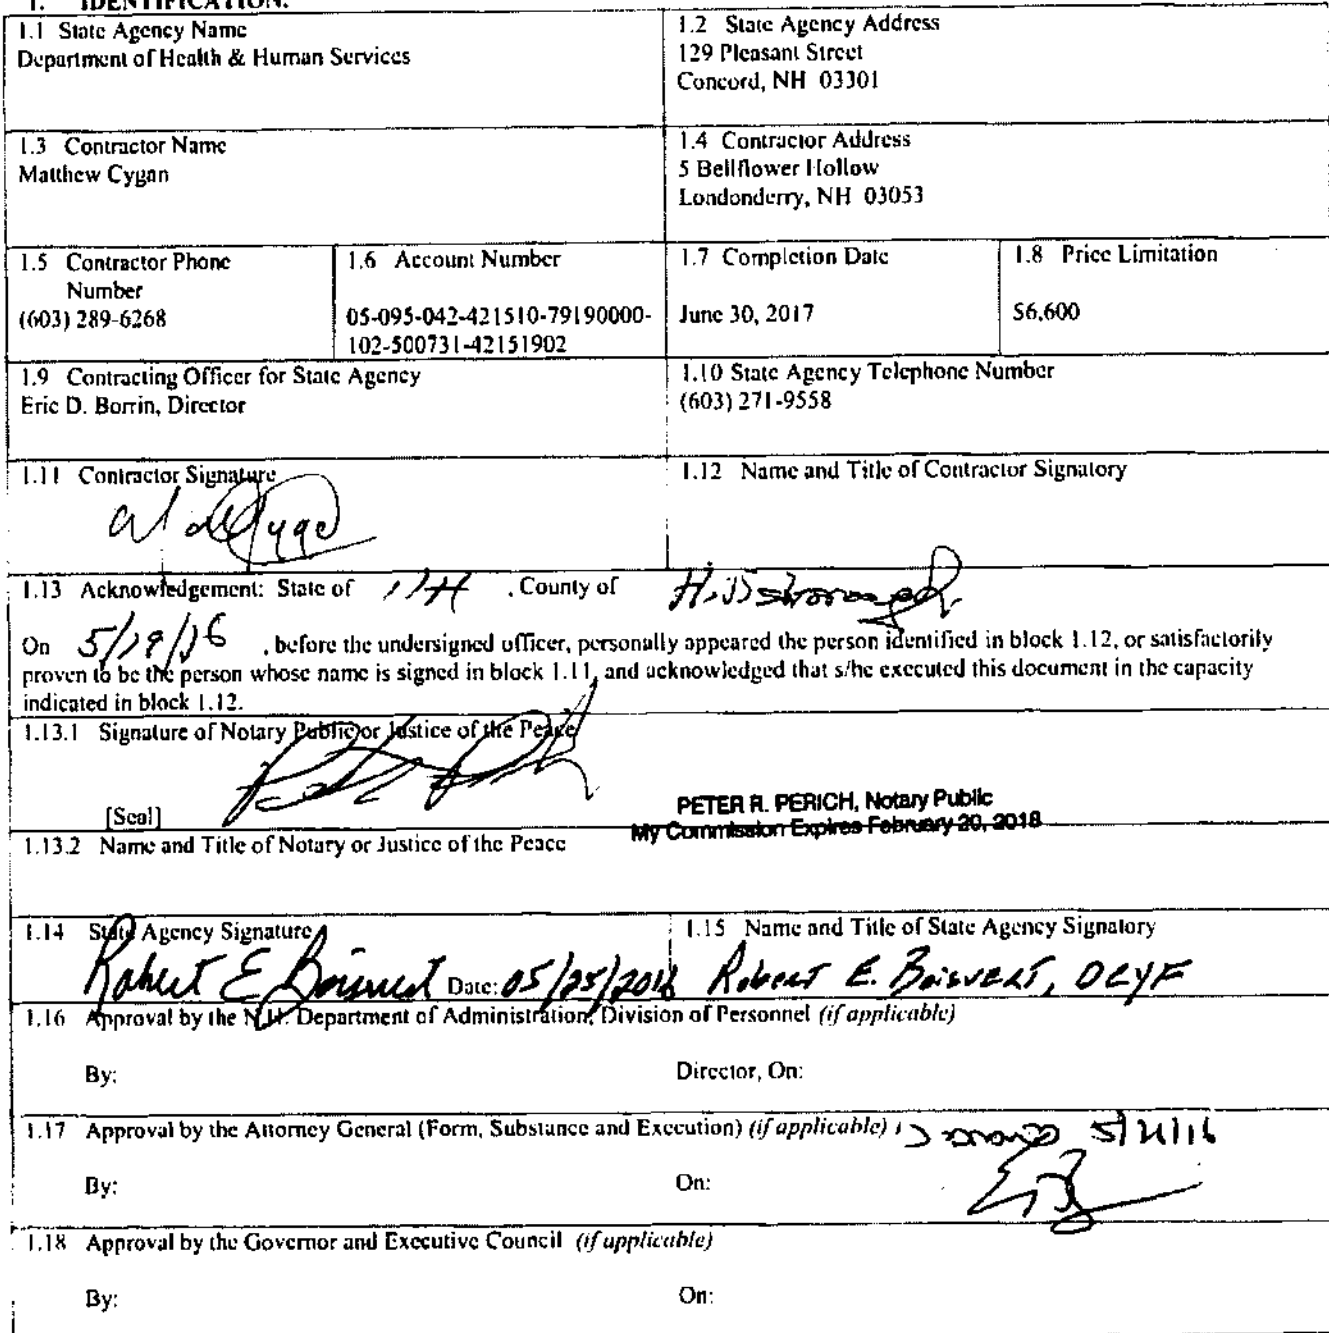 1. IDENTIFICATION.
1.1 State Agency Name
Department of Health & Human Services
1.2 State Agency Address
129 Pleasant Street
Concord, NH 03301
1.3 Contractor Name
Matthew Cygan
1.4 Contractor Address
5 Bellflower Hollow
Londonderry, NH 03053
1.5 Contractor Phone
Number
(603) 289-6268
1.6 Account Number
05-095-042-421510-79190000-
102-500731-42151902
1.7 Completion Date
June 30, 2017
1.8 Price Limitation
$6,600
1.9 Contracting Officer for State Agency
Eric D. Borrin, Director
1.10 State Agency Telephone Number
(603) 271-9558
1.11 Contractor Signature
1.12 Name and Title of Contractor Signatory
1.13 Acknowledgement: State of NH , County of Hillsborough
On 5/19/16 , before the undersigned officer, personally appeared the person identified in block 1.12, or satisfactorily
proven to be the person whose name is signed in block 1.11, and acknowledged that s/he executed this document in the capacity
indicated in block 1.12.
1.13.1 Signature of Notary Public or Justice of the Peace
[Seal]
PETER R. PERICH, Notary Public
My Commission Expires February 20, 2018
1.13.2 Name and Title of Notary or Justice of the Peace
1.14 State Agency Signature
Robert E Boisvert Date: 05/25/2016
1.15 Name and Title of State Agency Signatory
Robert E. Boisvert, DCYF
1.16 Approval by the N.H. Department of Administration, Division of Personnel (if applicable)
By: Director, On:
1.17 Approval by the Attorney General (Form, Substance and Execution) (if applicable)
By: On:
1.18 Approval by the Governor and Executive Council (if applicable)
By: On: